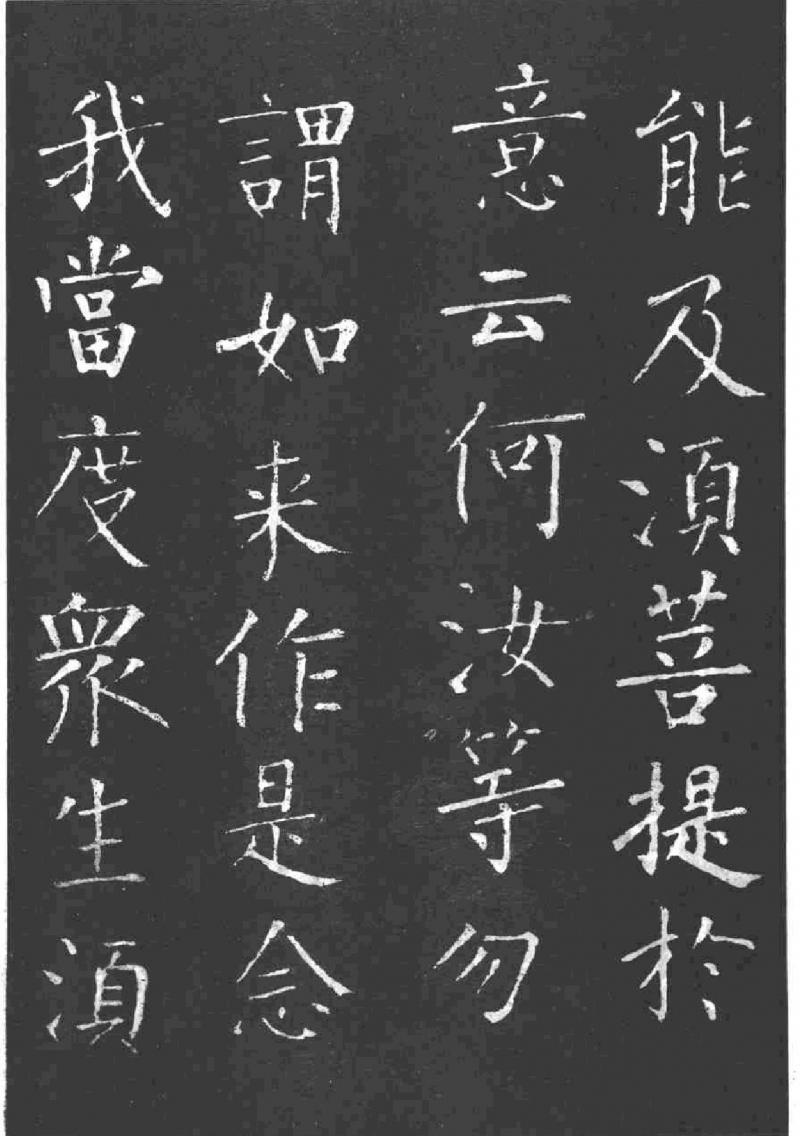 能及湏菩提於
意云何汝等勿
謂如来作是念
我當度眾生湏